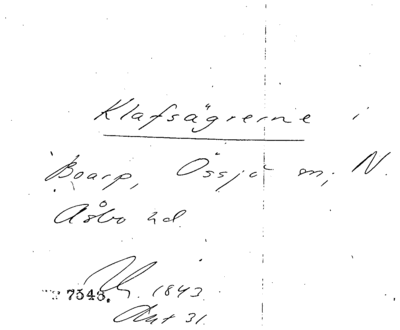 Klafsägrerne i
Boarp, Össjö sn, N.
Åsbo hd.
7543. 1843
Akt 31.